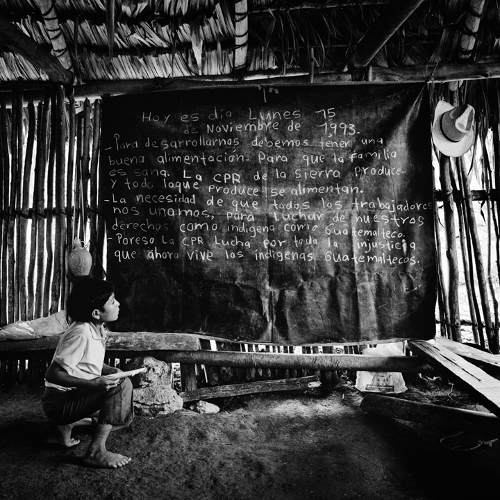 Hoy es dia Lunes 15
de Noviembre de 1993.
-Para desarrollarnos debemos tener una
buena alimentación. Para que la familia
es sana. La CPR de la Sierra Produce-
y todo loque Produce se alimentan.
-La necesidad de que todos los trabajadores
nos unamos, para Luchar de nuestros
derechos como indigena como Guatemalteco.
-Poreso La CPR Lucha por toda la injusticia
que ahora vive los indigenas Guatemaltecos.